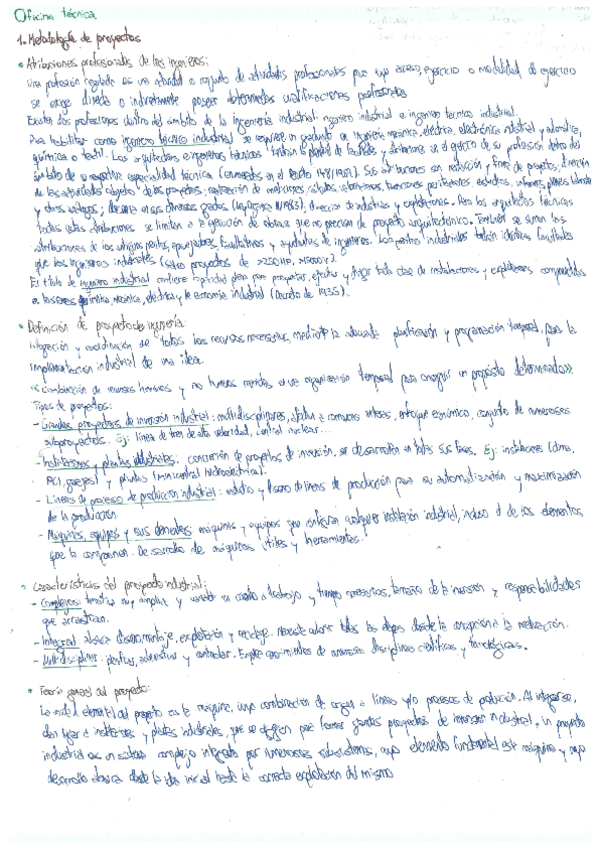 Oficina técnica
1. Metodología de proyectos
• Atribuciones profesionales de los ingenieros:
Una profesión regulada es una actividad o conjunto de actividades profesionales para cuyo acceso, ejercicio o modalidad de ejercicio
se exige directa o indirectamente poseer determinadas cualificaciones profesionales
Existen dos profesiones dentro del ámbito de la ingeniería industrial: ingeniero industrial e ingeniero técnico industrial.
Para habilitar como ingeniero técnico industrial se requiere un graduado en ingeniería mecánica, eléctrica, electrónica industrial y automática,
química o textil. Los arquitectos e ingenieros técnicos tendrán la plenitud de facultades y atribuciones en el ejercicio de su profesión dentro del
ámbito de su respectiva especialidad técnica. Sus atribuciones son redacción y firma de proyectos, dirección
de las actividades objeto de los proyectos, realización de mediciones, cálculos, valoraciones, tasaciones, peritaciones, estudios, informes, planes labores
y otros análogos; docencia en sus diversos grados, dirección de industrias y explotaciones. Para los arquitectos técnicos
todas estas atribuciones se limitan a la ejecución de obras que no precisan de proyecto arquitectónico. También se suman las
atribuciones de los antiguos peritos, aparejadores, facultativos y ayudantes de ingenieros. Los peritos industriales tendrán idénticas facultades
que los ingenieros industriales (salvo proyectos de >250HP,
El título de ingeniero industrial confiere capacidad plena para proyectar, ejecutar y dirigir toda clase de instalaciones y explotaciones comprendidas
a las ramas química, mecánica, eléctrica y de economía industrial (Decreto de 1935).
• Definición de proyecto de ingeniería:
Integración y coordinación de todos los recursos necesarios, mediante la adecuada planificación y programación temporal, para la
implementación industrial de una idea.
«Combinación de recursos humanos y no humanos reunidos en una organización temporal para conseguir un propósito determinado».
Tipos de proyectos:
- Grandes proyectos de inversión industrial: multidisciplinares, afectan a numerosas, enfoque económico, conjunto de numerosos
subproyectos. Ej: línea de tren de alta velocidad, central nuclear...
- Instalaciones y plantas industriales: concreción de proyectos de inversión, se desarrollan en todas sus fases. Ej: instalaciones (clima,
PCI, garajes) y plantas (minicentral hidroeléctrica).
- Líneas de proceso de producción industrial: estudio y diseño de líneas de producción para su automatización y maximización
de la producción
- Máquinas, equipos y sus elementos: máquinas y equipos que conforman cualquier instalación industrial, incluso el de los elementos
que la componen. Desarrollo de máquinas, útiles y herramientas.
• Características del proyecto industrial:
- Complejos: temática muy amplia y variada en cuanto a trabajo y tiempo necesarios, tamaño de la inversión y responsabilidades
que arrastran.
- Integral: abarca diseño, montaje, explotación y reciclaje. Necesita valorar todas las etapas desde la concepción a la realización.
- Multidisciplinar: planificar, administrar y controlar. Emplea conocimientos de numerosas disciplinas científicas y tecnológicas.
• Teoría general del proyecto:
La unidad elemental del proyecto es la máquina, cuya combinación da origen a líneas y/o procesos de producción. Al integrarse,
dan lugar a instalaciones y plantas industriales, que se para formar grandes proyectos de inversión industrial. Un proyecto
industrial es un sistema complejo integrado por numerosos subsistemas, cuyo elemento fundamental es la máquina y cuyo
desarrollo abarca desde la idea inicial hasta la correcta explotación del mismo